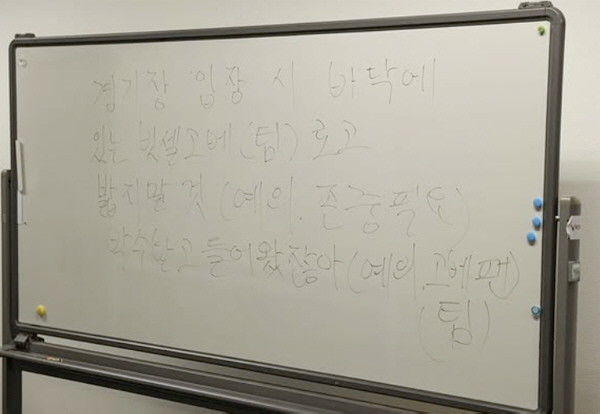 경기장 입장 시 바닥에
있는 빗셀고베(팀) 로고
밟지말 것 (예의. 존중필요)
박수받고들어왔잖아(예의.고베팬)
(팀)